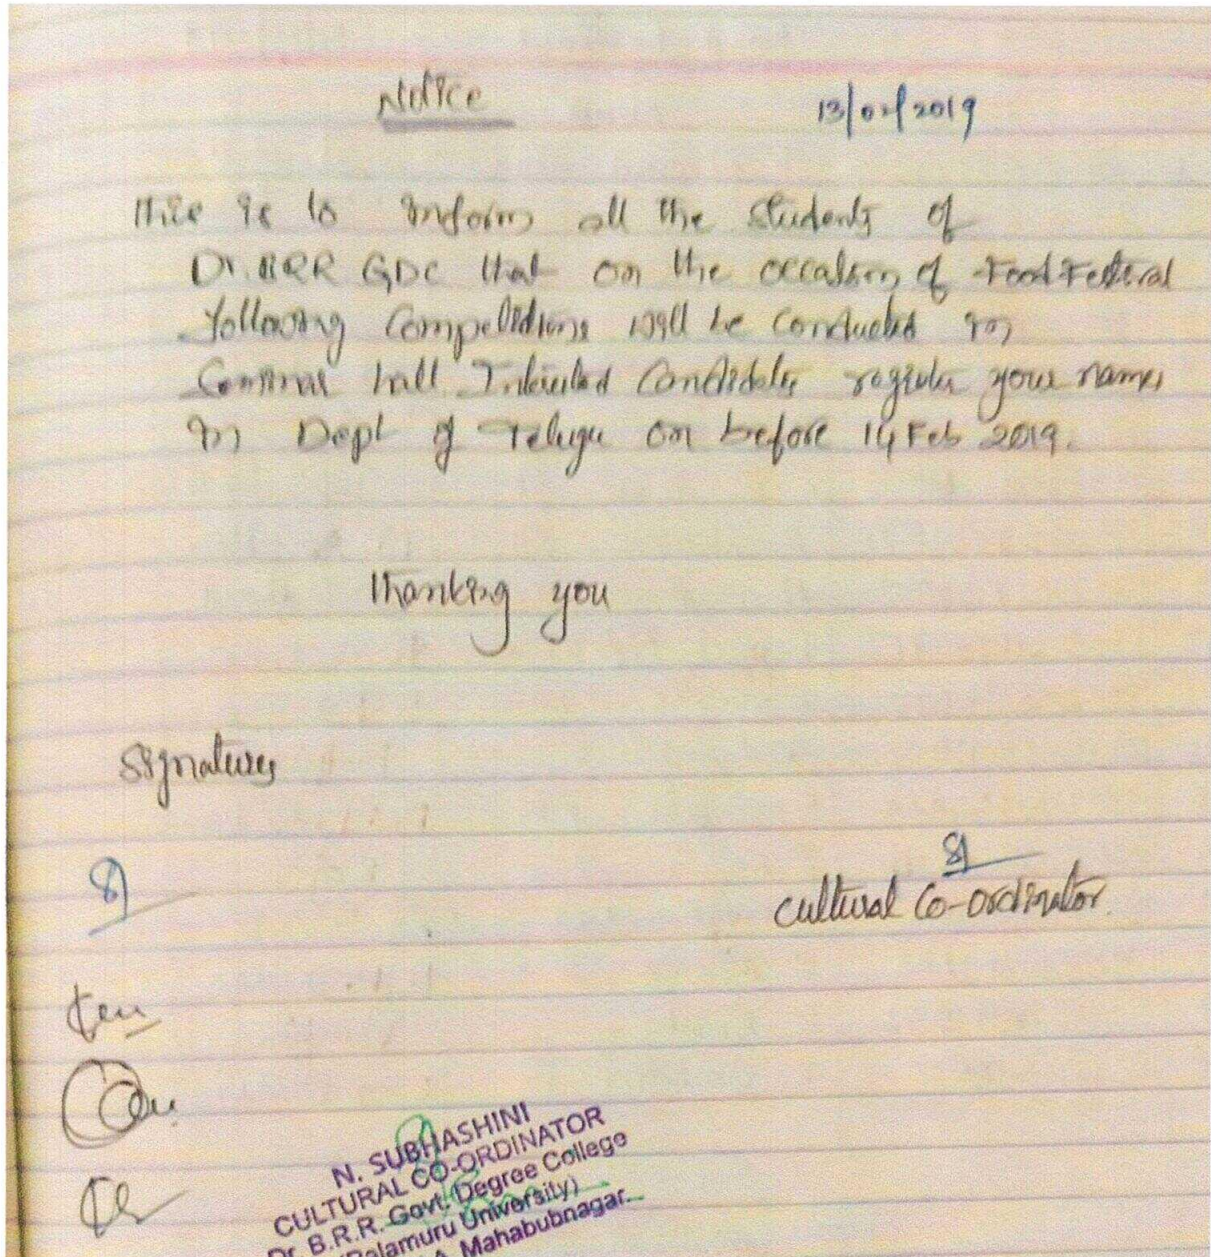 Notice
13/02/2019
This is to inform all the students of
Dr. BRR GDC that on the occasion of Food Festival
following Competitions will be conducted in
Seminar hall Interested Candidates register your names
in Dept of Telugu on before 14 Feb 2019.
Thanking you
Signatures
Cultural Co-ordinator.
N. SUBHASHINI
CULTURAL CO-ORDINATOR
Dr. B.R.R. Govt. Degree College
(Palamuru University)
Mahabubnagar